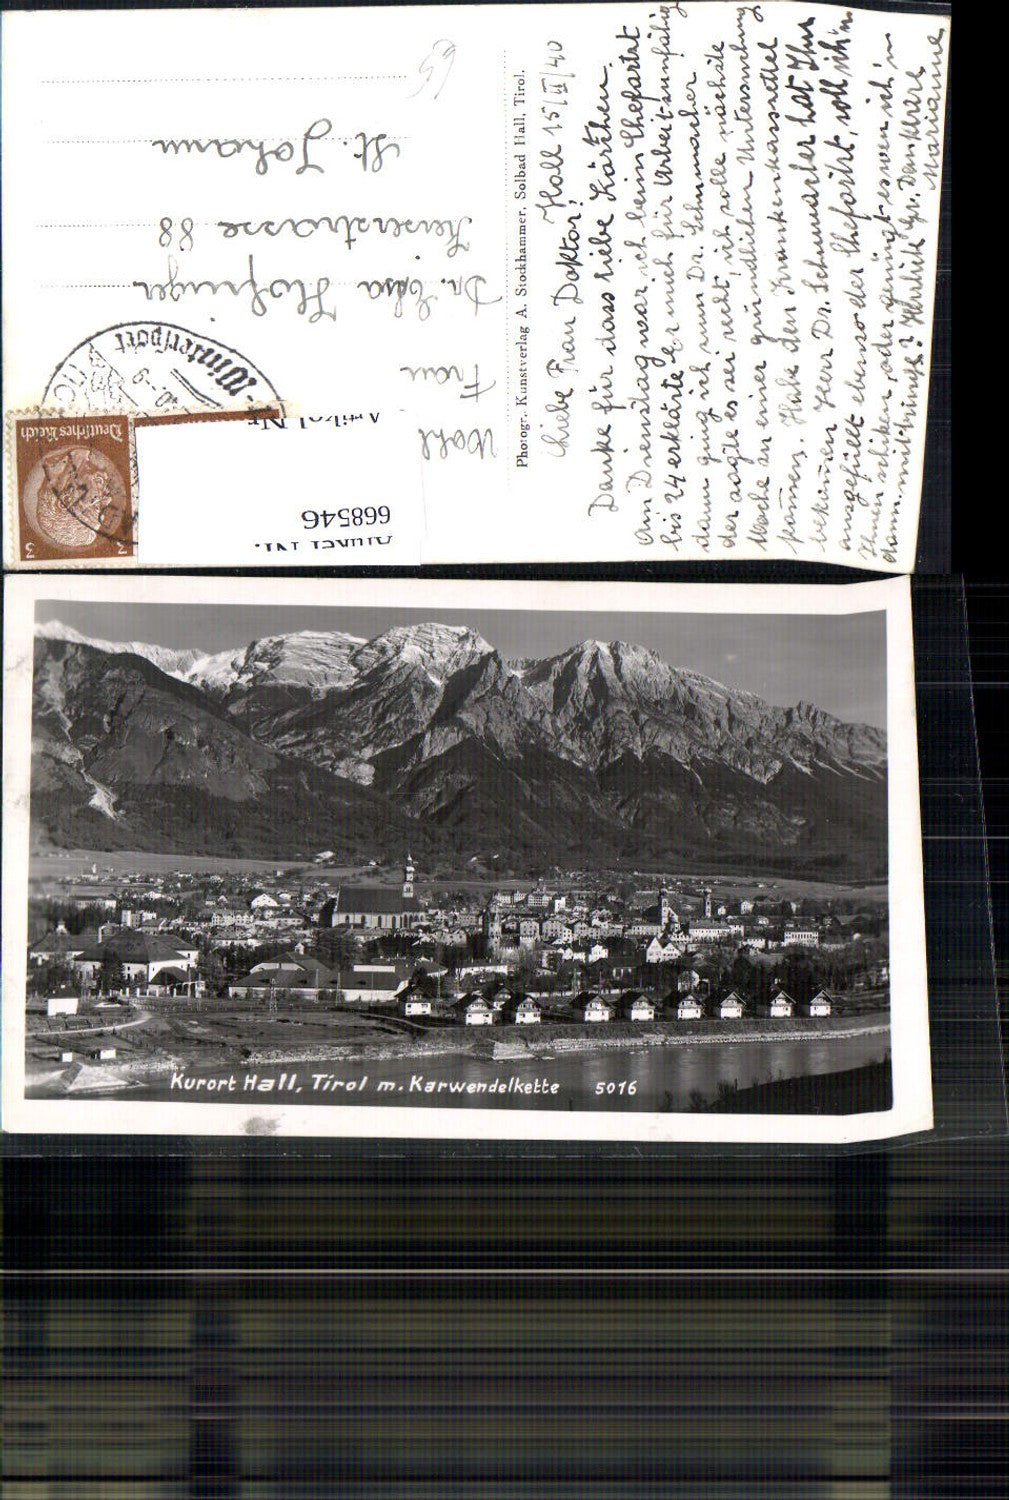 Hall 15/II/40
Liebe Frau Doktor!
Danke für dass liebe Kärtchen.
Am Dienstag war ich beim Chefartzt
bis 24 erklärte Er mich für Arbeitsunfähig
dann ging ich zum Dr. Schumacher
der sagte es sei recht, ich solle nächste
Woche an einer gründlichen Untersuchung
kommen. Habe den Krankenkasszettel
bekommen Herr Dr. Schumacher hat Ihn
ausgefüllt ebenso der Chefartzt, soll ich in
Ihnen schiken, oder genügt es wen ich in
dann mitbringe? Herzlich Gr. Dankbare
Marianne
Photogr. Kunstverlag A. Stockhammer, Solbad Hall, Tirol.
59
Wohl
Frau
Dr. Elsa Hofinger
Kaiserstrasse 88
St. Johann
Wintersport
Deutsches Reich
3
3
Artikel Nr.
668546
Artikel Nr.
Kurort Hall, Tirol m. Karwendelkette 5016